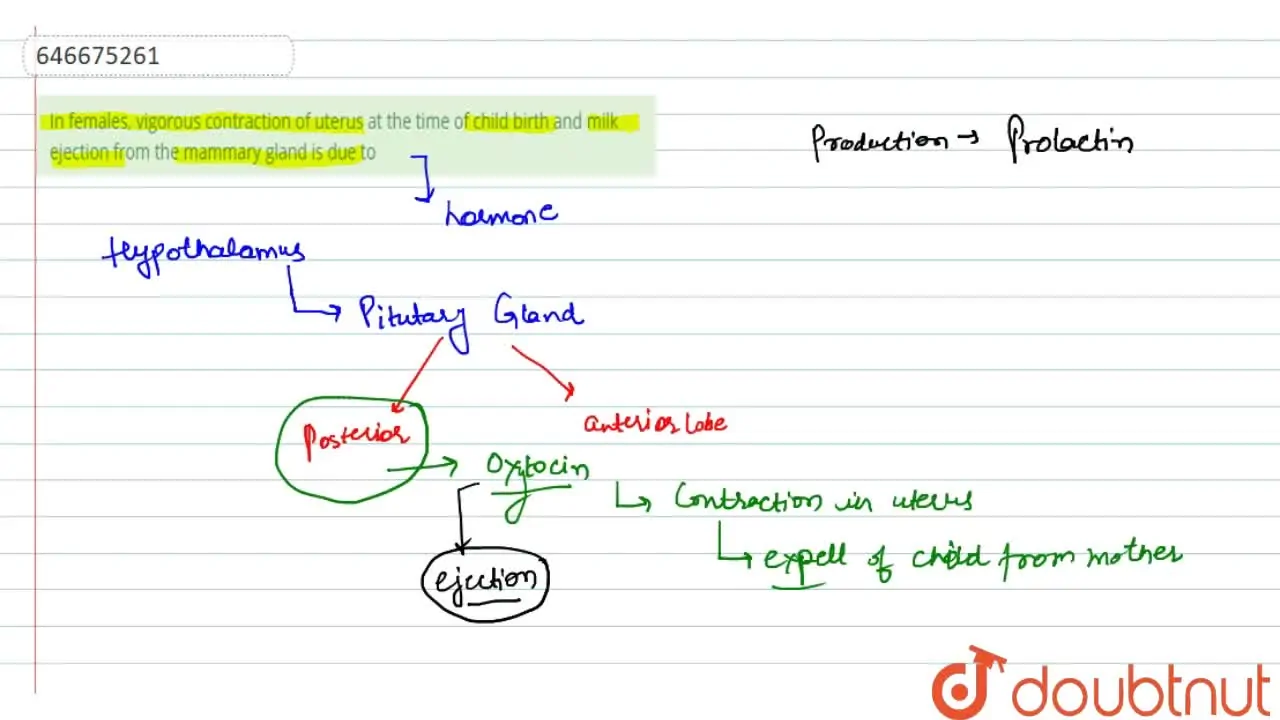 646675261
In females, vigorous contraction of uterus at the time of child birth and milk
ejection from the mammary gland is due to
Production → Prolactin
hormone
Hypothalamus
Pitutary Gland
Posterior
anterior lobe
Oxytocin
Contraction in uterus
expell of child from mother
ejection
doubtnut